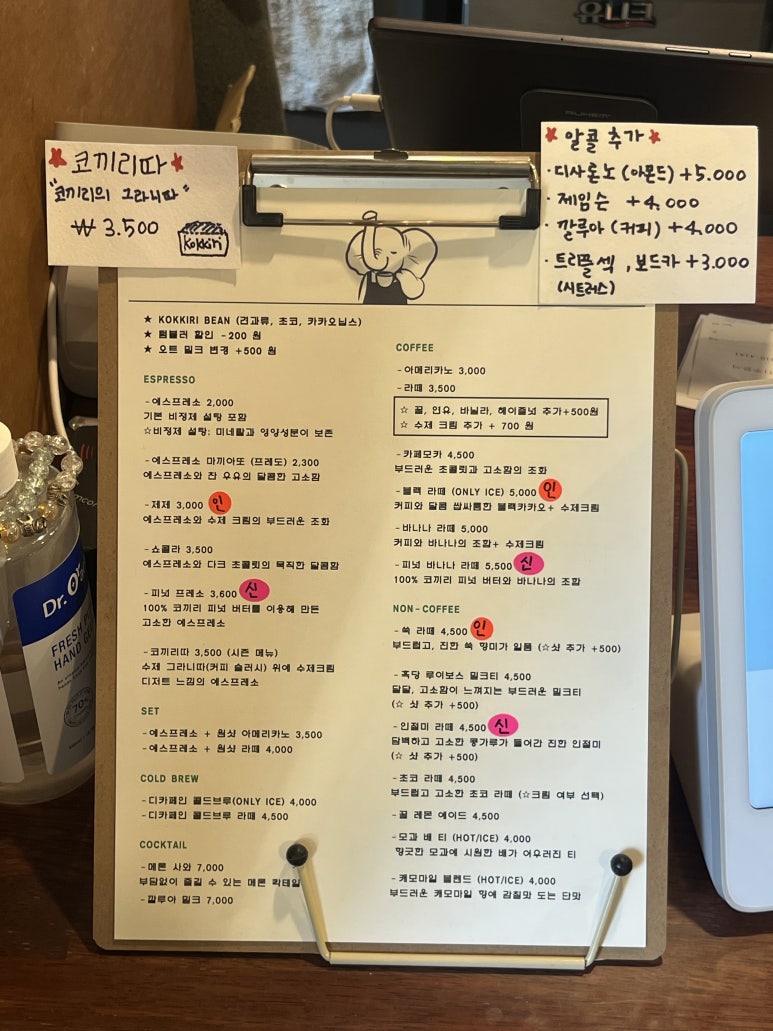 코끼리따
"코끼리의 그라니따"
₩ 3.500
kokkiri
알콜 추가
· 디사론노 (아몬드) +5.000
· 제임슨 +4.000
· 깔루아 (커피) +4.000
· 트리플 섹, 보드카 +3.000
(시트러스)
★ KOKKIRI BEAN (견과류, 초코, 카카오닙스)
★ 텀블러 할인 -200 원
★ 오트 밀크 변경 +500 원
ESPRESSO
- 에스프레소 2,000
기본 비정제 설탕 포함
☆비정제 설탕: 미네랄과 영양성분이 보존
- 에스프레소 마끼아또 (프레도) 2,300
에스프레소와 찬 우유의 달콤한 고소함
- 제제 3,000 인
에스프레소와 수제 크림의 부드러운 조화
- 쇼콜라 3,500
에스프레소와 다크 초콜릿의 묵직한 달콤함
- 피넛 프레소 3,600 신
100% 코끼리 피넛 버터를 이용해 만든
고소한 에스프레소
- 코끼리따 3,500 (시즌 메뉴)
수제 그라니따(커피 슬러시) 위에 수제크림
디저트 느낌의 에스프레소
SET
- 에스프레소 + 원샷 아메리카노 3,500
- 에스프레소 + 원샷 라떼 4,000
COLD BREW
- 디카페인 콜드브루(ONLY ICE) 4,000
- 디카페인 콜드브루 라떼 4,500
COCKTAIL
- 메론 사와 7,000
부담없이 즐길 수 있는 메론 칵테일
- 깔루아 밀크 7,000
COFFEE
- 아메리카노 3,000
- 라떼 3,500
☆ 꿀, 연유, 바닐라, 헤이즐넛 추가+500원
☆ 수제 크림 추가 + 700 원
- 카페모카 4,500
부드러운 초콜릿과 고소함의 조화
- 블랙 라떼 (ONLY ICE) 5,000 인
커피와 달콤 쌉싸름한 블랙카카오+ 수제크림
- 바나나 라떼 5,000
커피와 바나나의 조합+ 수제크림
- 피넛 바나나 라떼 5,500 신
100% 코끼리 피넛 버터와 바나나의 조합
NON-COFFEE
- 쑥 라떼 4,500 인
부드럽고, 진한 쑥 향미가 일품 (☆샷 추가 +500)
- 흑당 루이보스 밀크티 4,500
달달, 고소함이 느껴지는 부드러운 밀크티
(☆ 샷 추가 +500)
- 인절미 라떼 4,500 신
담백하고 고소한 콩가루가 들어간 진한 인절미
(☆ 샷 추가 +500)
- 초코 라떼 4,500
부드럽고 고소한 초코 라떼 (☆크림 여부 선택)
- 꿀 레몬 에이드 4,500
- 모과 배 티 (HOT/ICE) 4,000
향긋한 모과에 시원한 배가 어우러진 티
- 캐모마일 블렌드 (HOT/ICE) 4,000
부드러운 캐모마일 향에 감칠맛 도는 단맛
Dr.
FRESH
HAND
70%